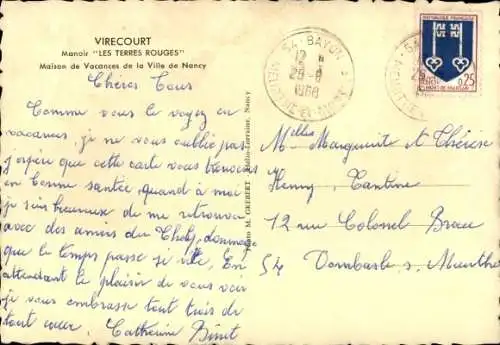 VIRECOURT
Manoir "LES TERRES ROUGES"
Maison de Vacances de la Ville de Nancy
Chères Tous
Comme vous le voyez en
vacances, je ne vous oublie pas
j'espère que cette carte vous trouvera
en bonne santée, quand à moi
je suis heureuse de me retrouver
avec des amies du dommage
que le temps passe si vite. En
attendant le plaisir de vous voir
je vous embrasse tout trois de
tout cœur. Catherine Binet
Photo M. GREBERT Hélio-Lorraine, Nancy
54 - BAYON
12 H
29-8
1968
MEURTHE-ET-MOSELLE
REPUBLIQUE FRANÇAISE
0,25
MONT-DE-MARSAN
Melles Marguerite et Thérèse
Henry, Cantine
12 rue Colonel
54 Dombasle s. Meurthe